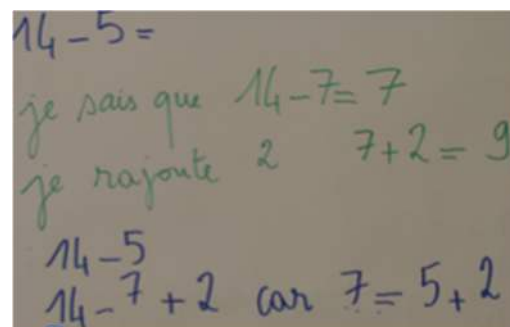 14-5=
je sais que 14-7=7
je rajoute 2 7+2=9
14-5
14-7+2 car 7=5+2